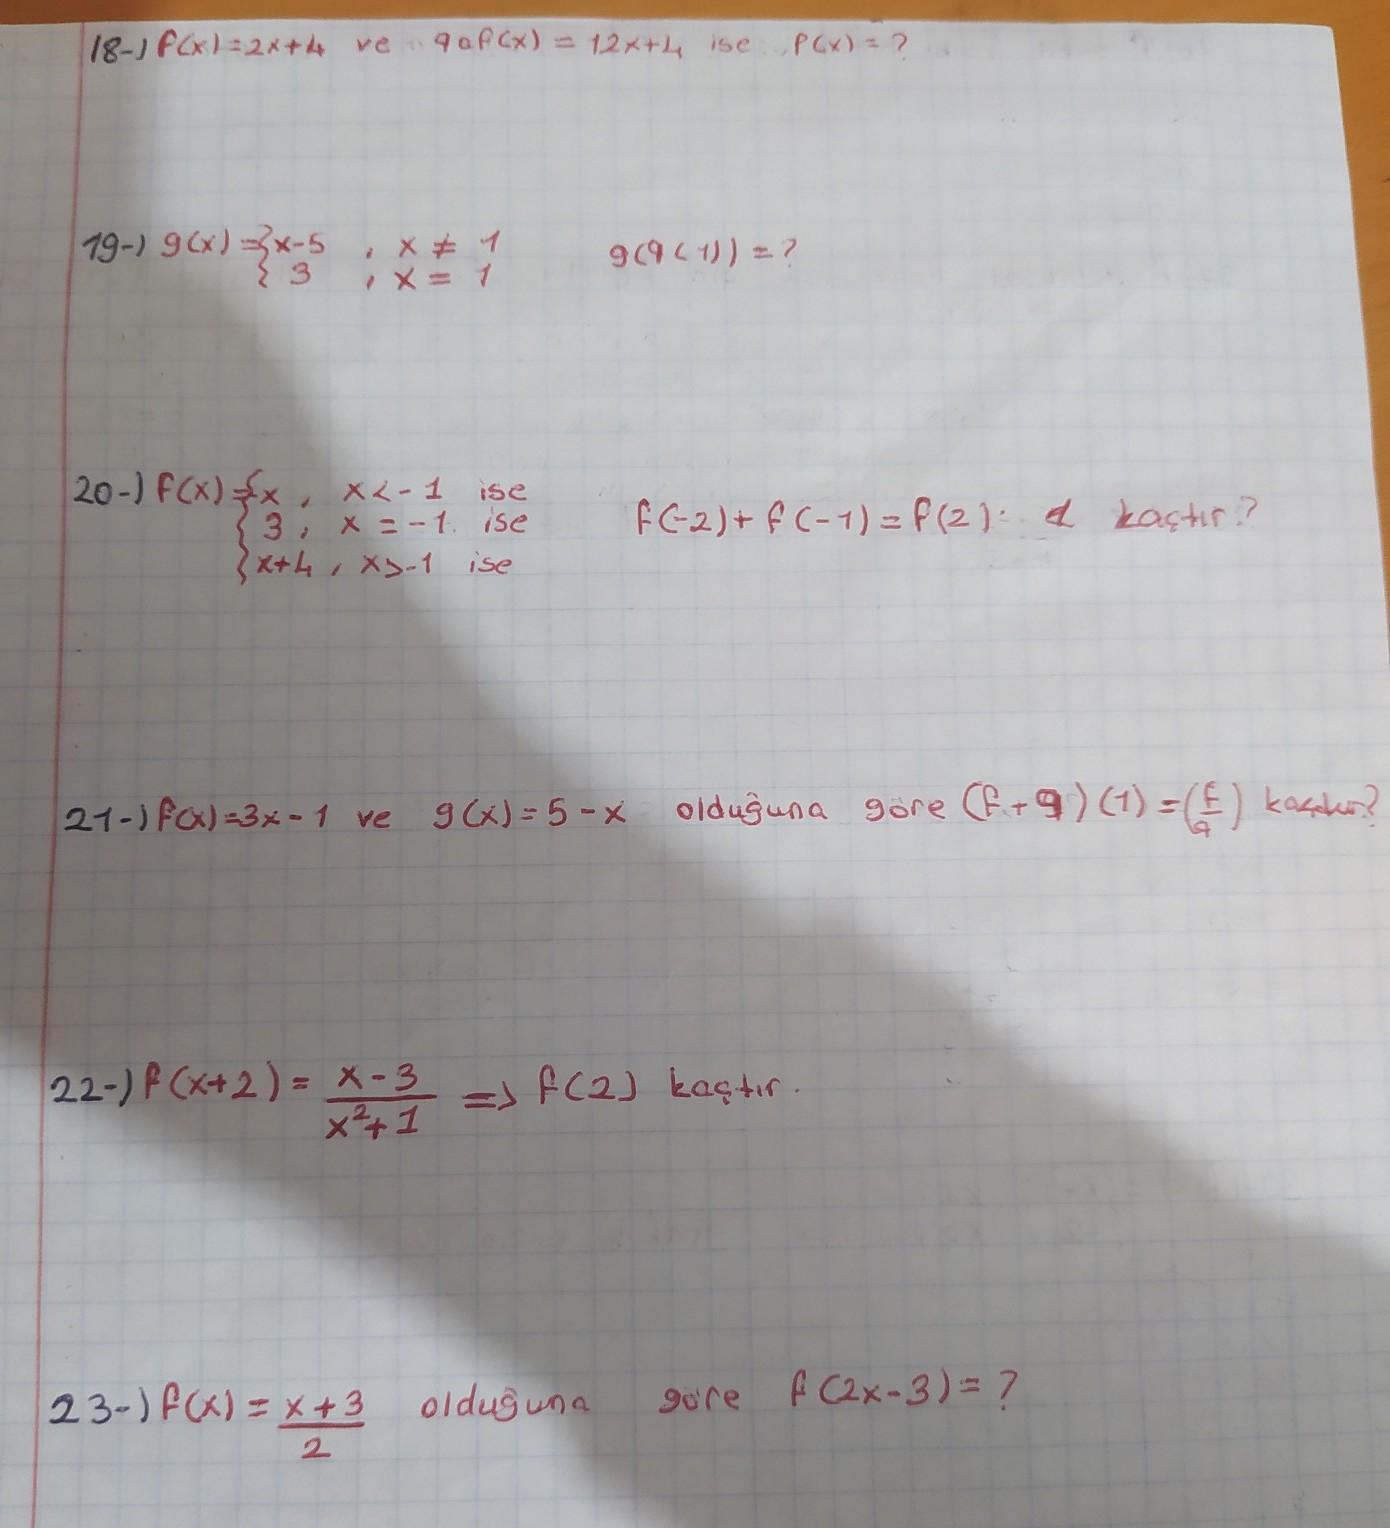 18-) f(x)=2x+4 ve gof(x) = 12x+4 ise f(x) = ?
19-) g(x)={x-5 , x ≠ 1 g(g(1)) = ?
{ 3 , x = 1
20-) f(x)={x , x<-1 ise
{ 3 , x = -1 ise f(-2)+f(-1)=f(2) kaçtır?
{x+4 , x>-1 ise
21-) f(x)=3x-1 ve g(x)=5-x olduğuna göre (f+g)(1)=(f/g) kaçtır?
22-) f(x+2) = x-3 / x²+1 => f(2) kaçtır.
23-) f(x) = x+3 / 2 olduğuna göre f(2x-3) = ?